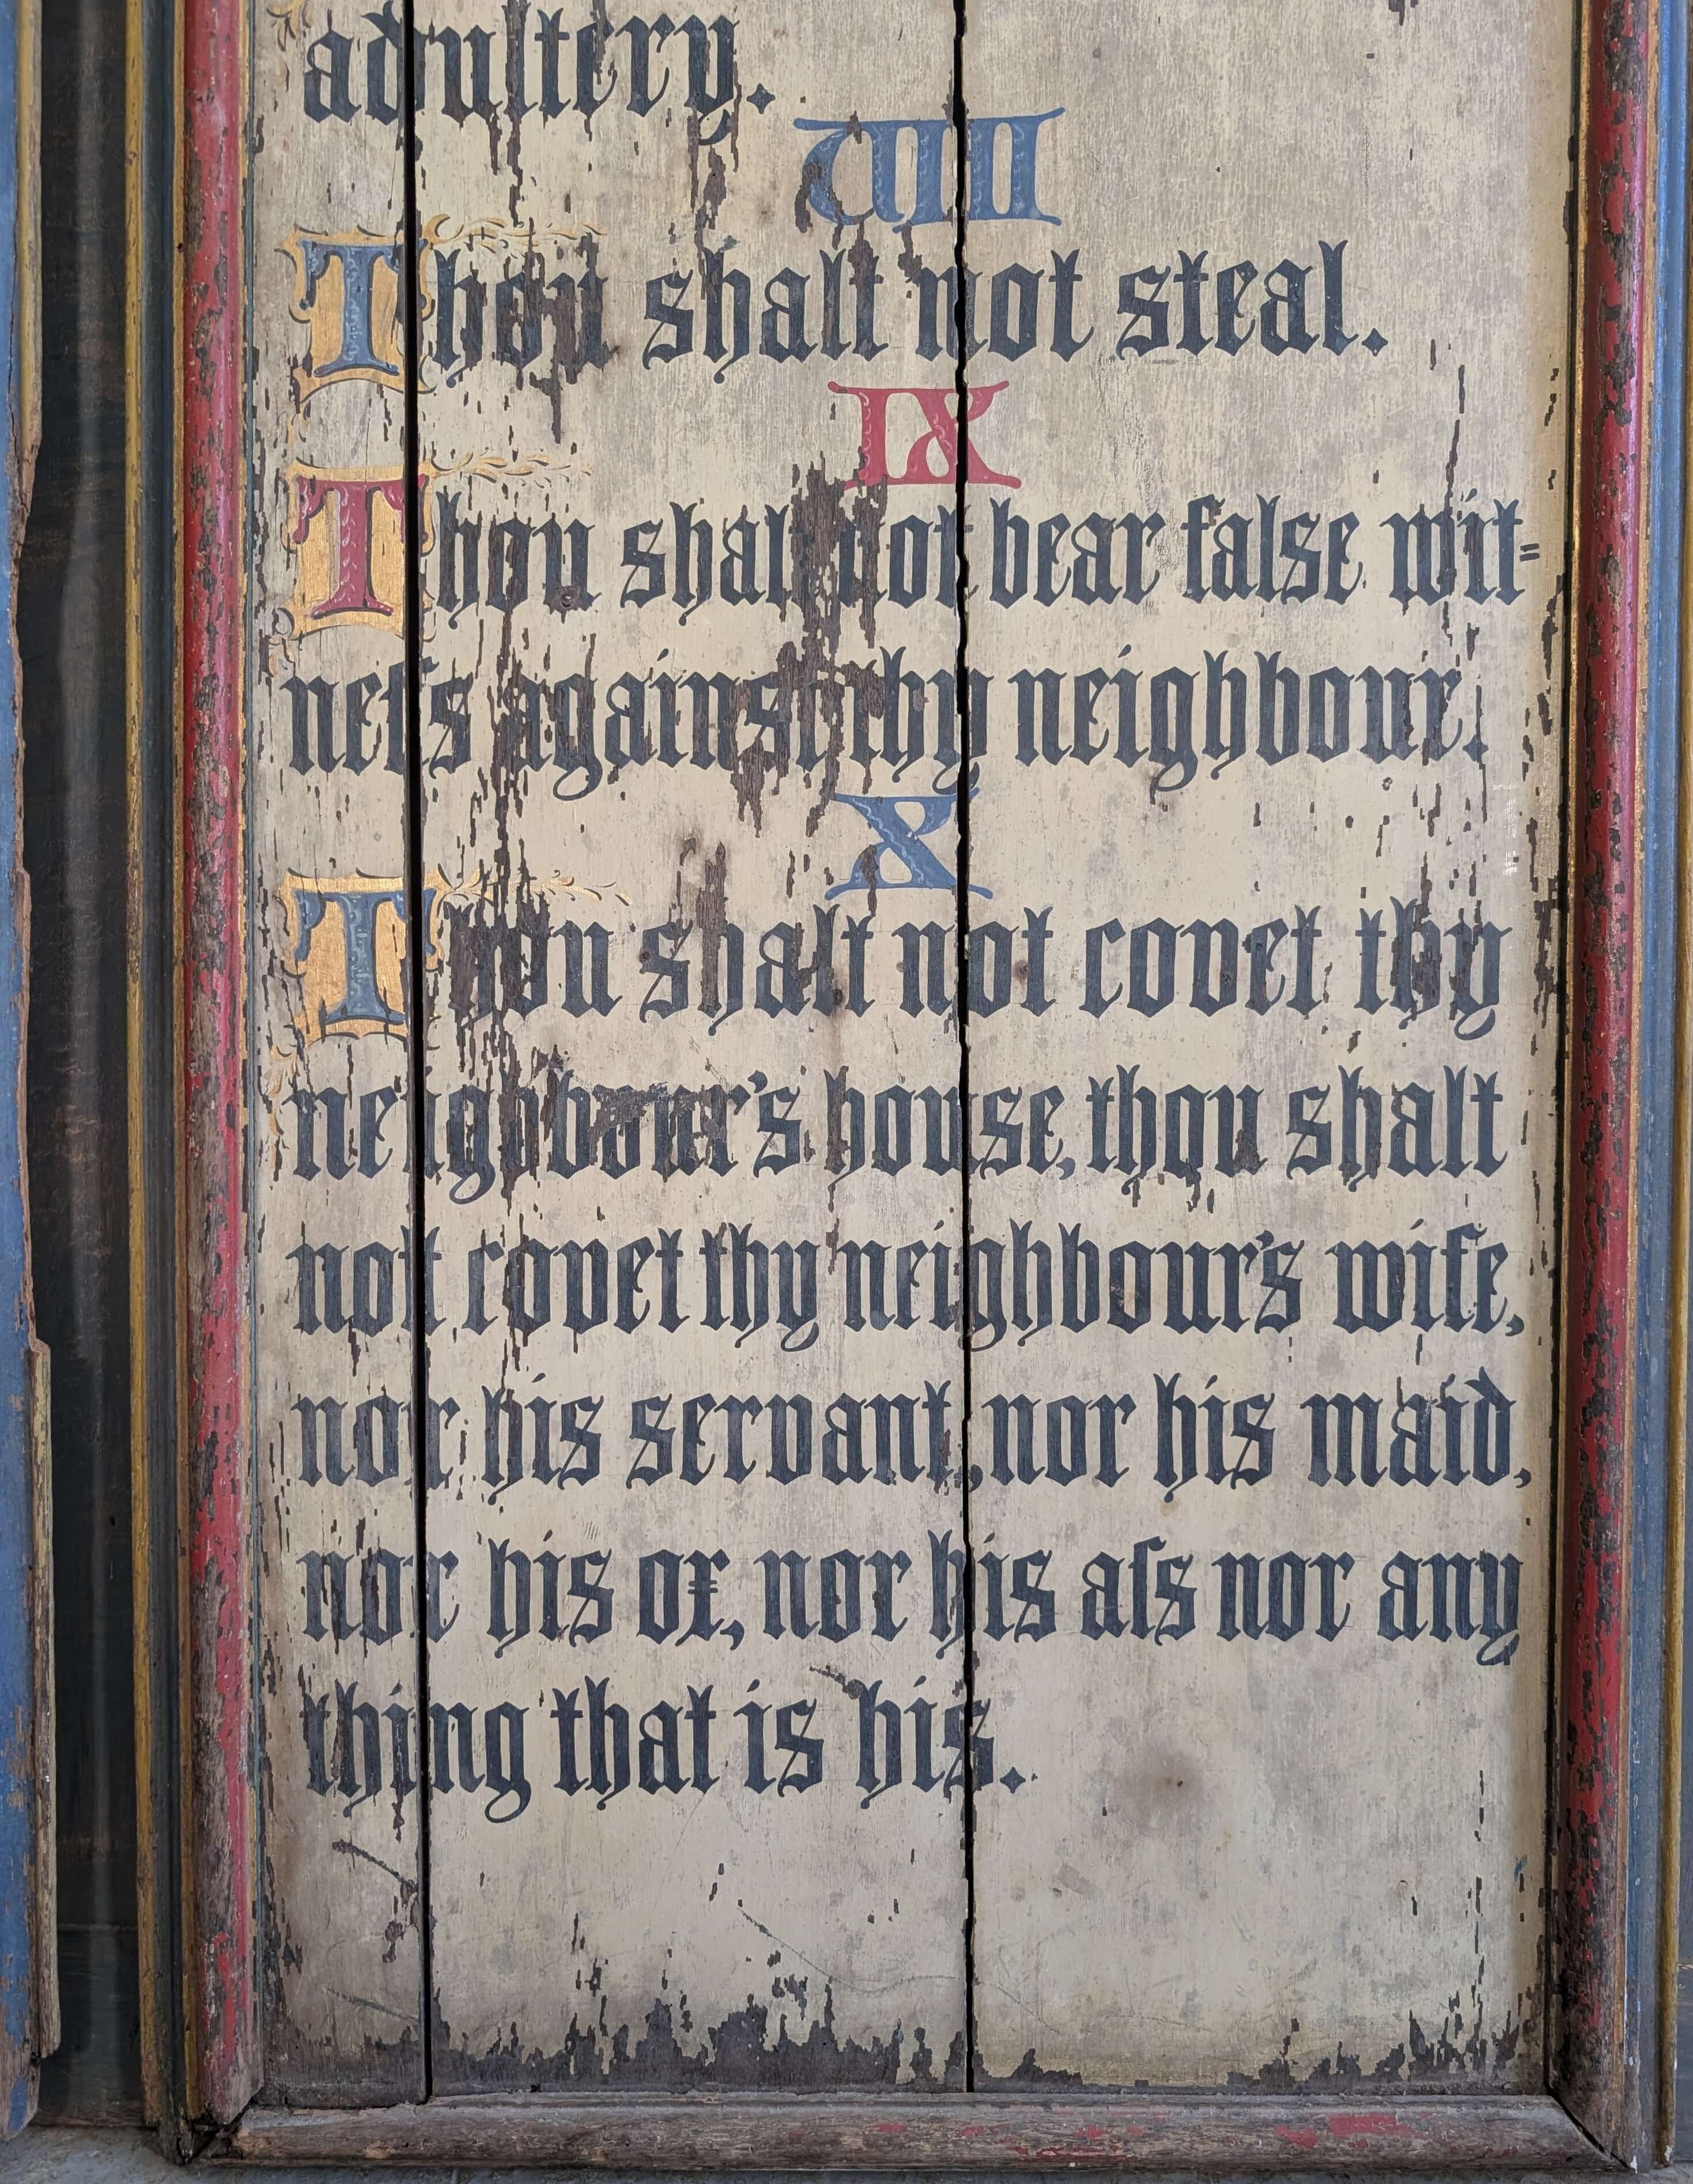 adultery.
VIII
Thou shalt not steal.
IX
Thou shalt not bear false wit=
neſs against thy neighbour.
X
Thou shalt not covet thy
neighbour's house, thou shalt
not covet thy neighbour's wife,
nor his servant, nor his maid,
nor his ox, nor his aſs nor any
thing that is his.